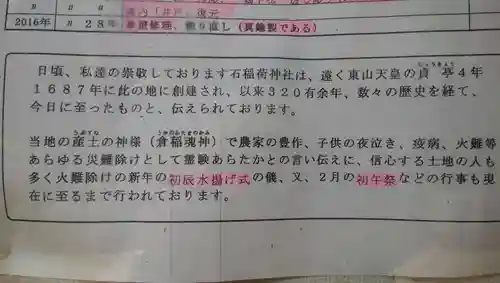 〃 〃 〃 境内「井戸」復元
2016年 〃 28年 拳置修理、塗り直し(真鍮製である)
日頃、私達の崇敬しております石稲荷神社は、遠く東山天皇の貞享4年
1687年に此の地に創建され、以来320有余年、数々の歴史を経て、
今日に至ったものと、伝えられております。
当地の産土の神様(倉稲魂神)で農家の豊作、子供の夜泣き、疫病、火難等
あらゆる災難除けとして霊験あらたかとの言い伝えに、信心する土地の人も
多く火難除けの新年の初辰水揚げ式の儀、又、2月の初午祭などの行事も現
在に至るまで行われております。